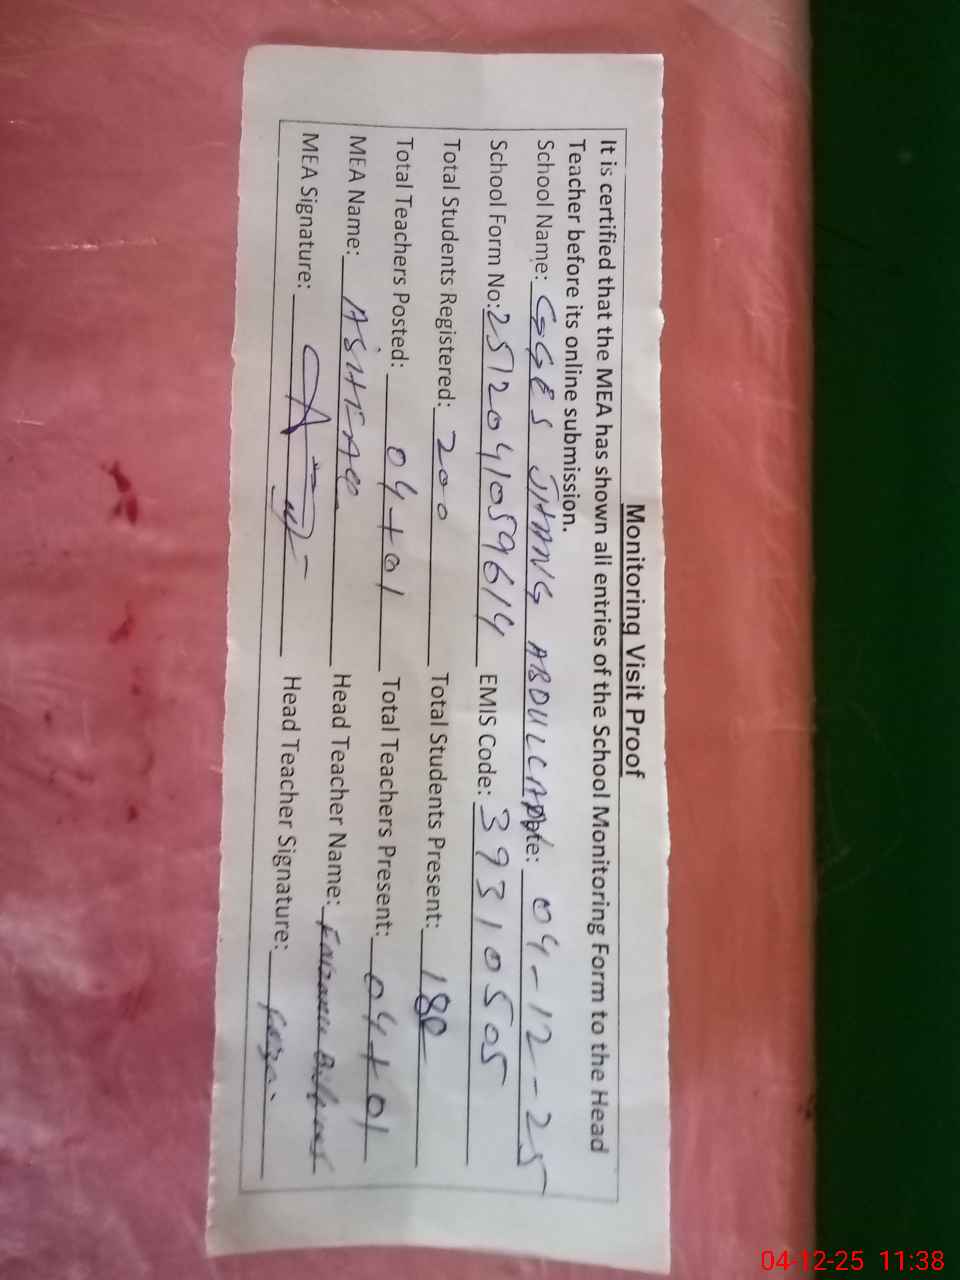 Monitoring Visit Proof
It is certified that the MEA has shown all entries of the School Monitoring Form to the Head
Teacher before its online submission.
School Name: GGES JHANG ABDUL Date: 04-12-25
School Form No: 2512041059614 EMIS Code: 39310505
Total Students Registered: 200 Total Students Present: 180
Total Teachers Posted: 04+01 Total Teachers Present: 04+01
MEA Name: ASHFAQ Head Teacher Name:
MEA Signature: Head Teacher Signature:
04-12-25 11:38